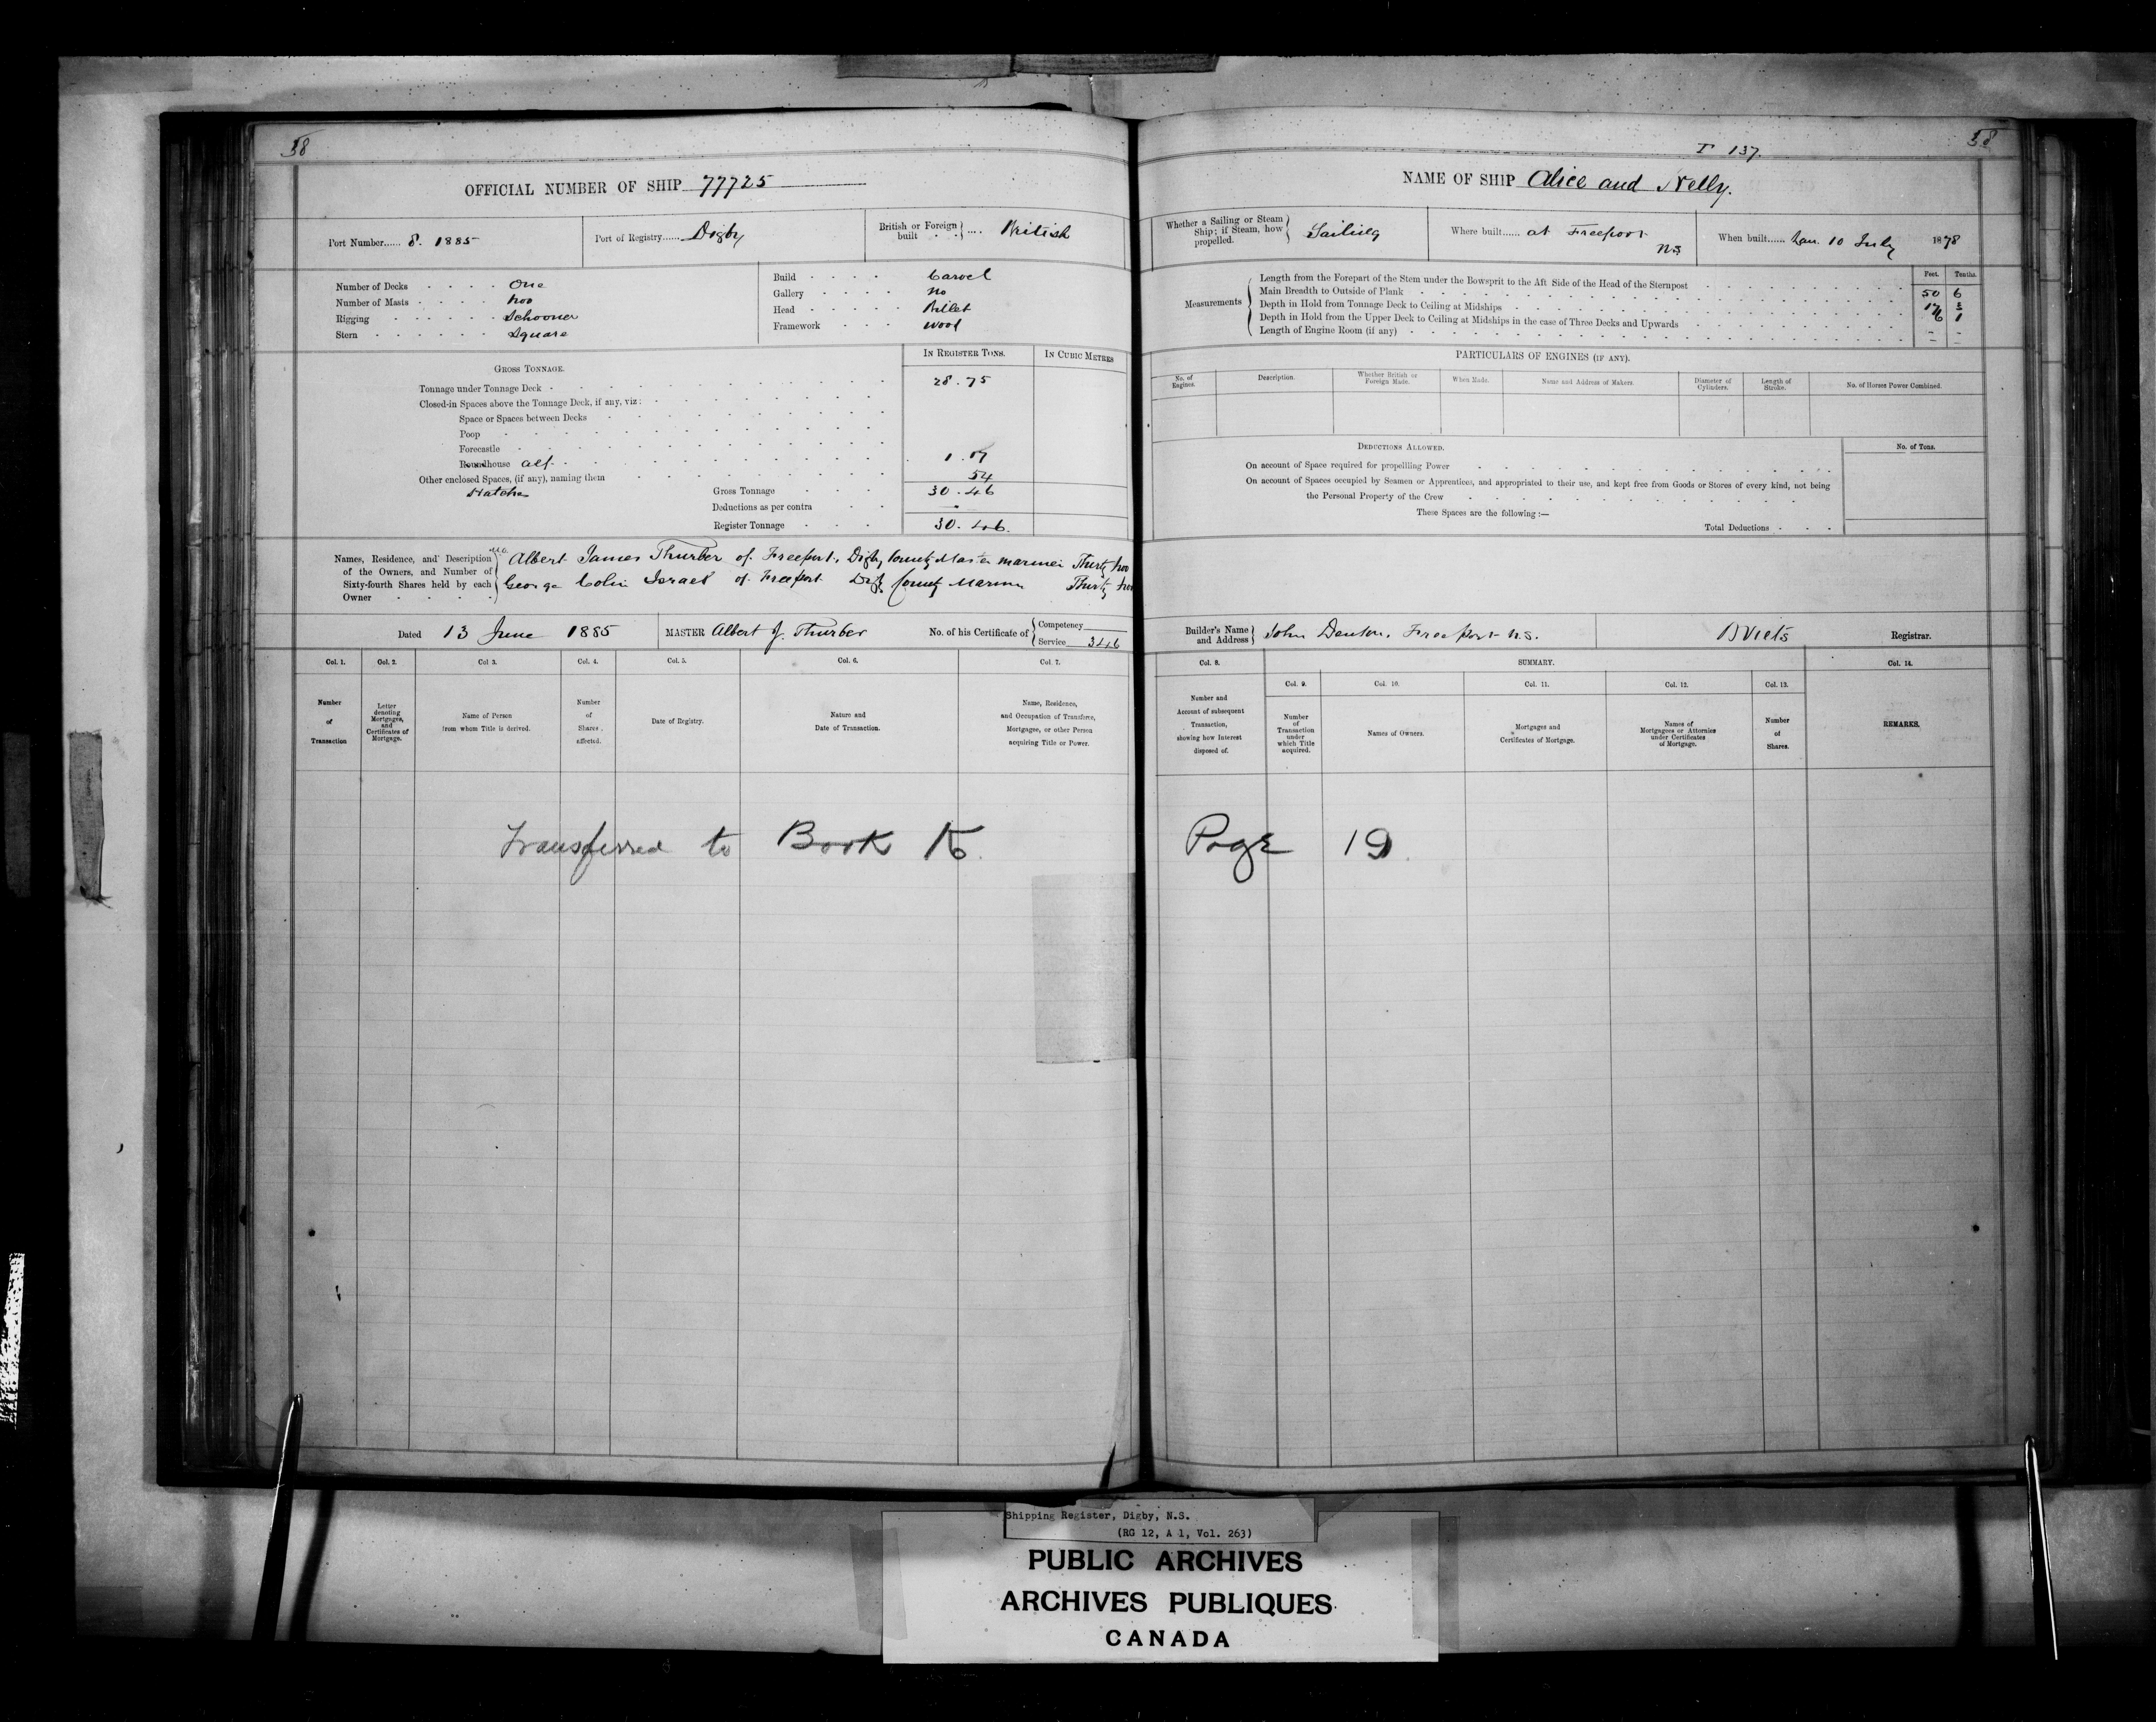 58
OFFICIAL NUMBER OF SHIP 77725
Port Number...... 8. 1885
Port of Registry...... Digby
British or Foreign built } .... British
Number of Decks One
Number of Masts Two
Rigging Schooner
Stern Square
Build Carvel
Gallery no
Head Billet
Framework wood
GROSS TONNAGE.
IN REGISTER TONS.
IN CUBIC METRES
Tonnage under Tonnage Deck 28.75
Closed-in Spaces above the Tonnage Deck, if any, viz:
Space or Spaces between Decks
Poop
Forecastle
Roundhouse aft 1.17
Other enclosed Spaces, (if any), naming them 54
Hatches
Gross Tonnage 30.46
Deductions as per contra
Register Tonnage 30.46.
Names, Residence, and Description of the Owners, and Number of Sixty-fourth Shares held by each Owner
Albert James Thurber of Freeport, Digby County Master mariner Thirty two
George Colin Israel of Freeport Digby County Mariner Thirty two
Dated 13 June 1885
MASTER Albert J. Thurber
No. of his Certificate of { Competency
Service 346
Col. 1. Col. 2. Col 3. Col. 4. Col. 5. Col. 6. Col. 7.
Number of Transaction
Letter denoting Mortgages, and Certificates of Mortgage.
Name of Person from whom Title is derived.
Number of Shares affected.
Date of Registry.
Nature and Date of Transaction.
Name, Residence, and Occupation of Transferee, Mortgagee, or other Person acquiring Title or Power.
Transferred to Book
58
I 137.
NAME OF SHIP Alice and Nelly.
Whether a Sailing or Steam Ship; if Steam, how propelled. } Sailing
Where built...... at Freeport N.S
When built...... 10 July 1878
Measurements
Feet. Tenths.
Length from the Forepart of the Stem under the Bowsprit to the Aft Side of the Head of the Sternpost 50 6
Main Breadth to Outside of Plank
Depth in Hold from Tonnage Deck to Ceiling at Midships 6 1
Depth in Hold from the Upper Deck to Ceiling at Midships in the case of Three Decks and Upwards – –
Length of Engine Room (if any) – –
PARTICULARS OF ENGINES (IF ANY).
No. of Engines.
Description.
Whether British or Foreign Made.
When Made.
Name and Address of Makers.
Diameter of Cylinders.
Length of Stroke.
No. of Horses Power Combined.
DEDUCTIONS ALLOWED.
No. of Tons.
On account of Space required for propelling Power
On account of Spaces occupied by Seamen or Apprentices, and appropriated to their use, and kept free from Goods or Stores of every kind, not being
the Personal Property of the Crew
These Spaces are the following :—
Total Deductions
Builder's Name and Address } John Denton, Freeport N.S.
B Viets Registrar.
Col. 8. SUMMARY. Col. 14.
Col. 9. Col. 10. Col. 11. Col. 12. Col. 13.
Number and Account of subsequent Transaction, showing how Interest disposed of.
Number of Transaction under which Title acquired.
Names of Owners.
Mortgages and Certificates of Mortgage.
Names of Mortgagees or Attornies under Certificates of Mortgage.
Number of Shares.
REMARKS.
Page 19
Shipping Register, Digby, N.S.
(RG 12, A 1, Vol. 263)
PUBLIC ARCHIVES
ARCHIVES PUBLIQUES
CANADA